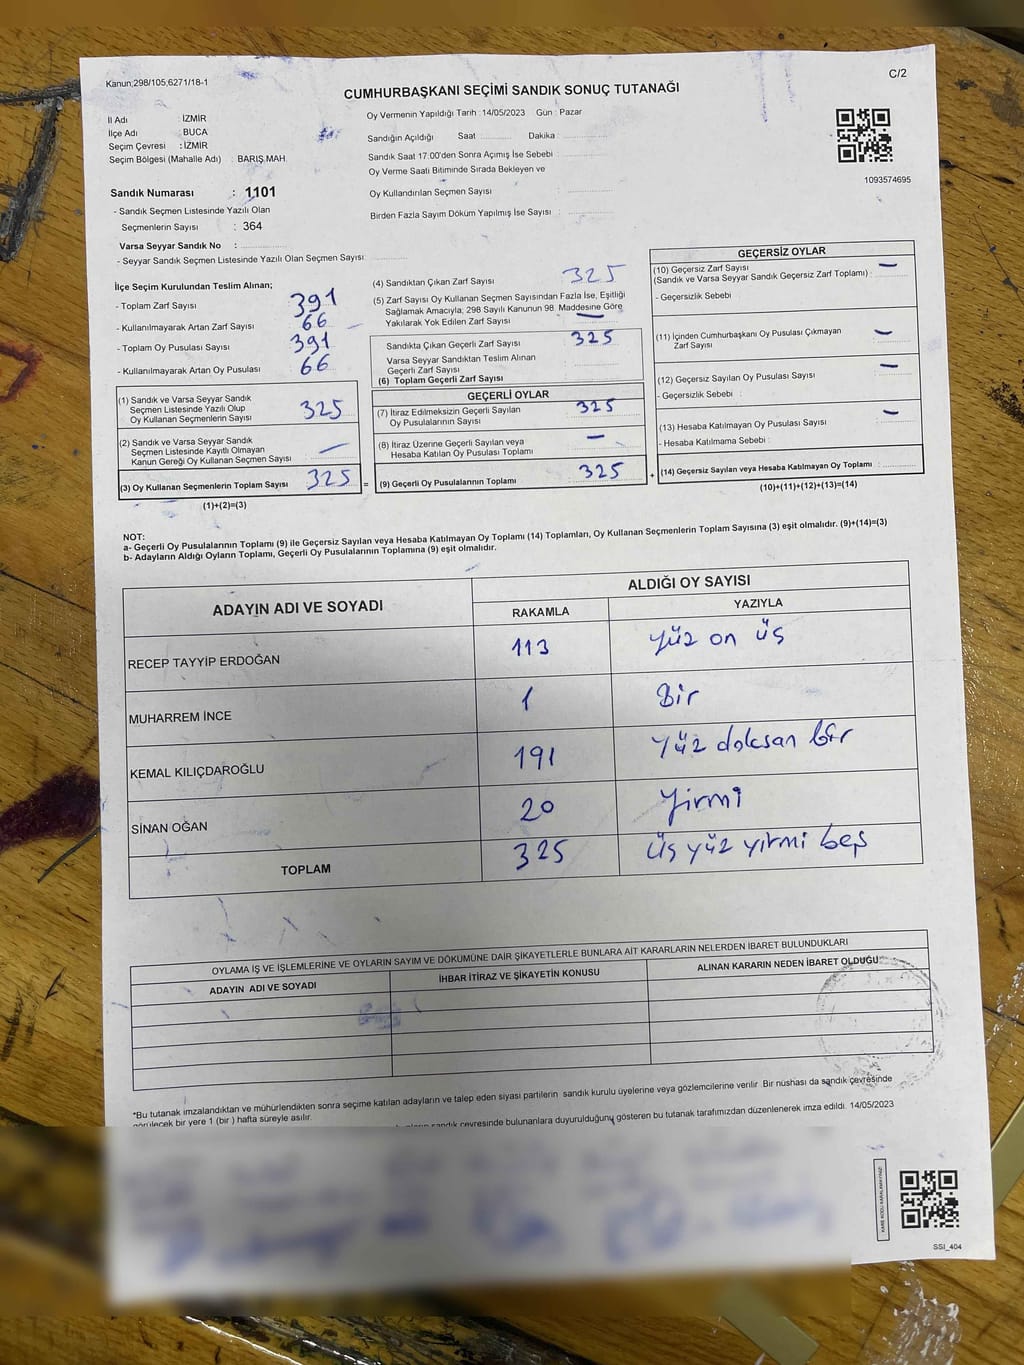 Kanun,298/105,6271/18-1
C/2
CUMHURBAŞKANI SEÇİMİ SANDIK SONUÇ TUTANAĞI
İl Adı : İZMİR
İlçe Adı : BUCA
Seçim Çevresi : İZMİR
Seçim Bölgesi (Mahalle Adı) : BARIŞ MAH.
Sandık Numarası : 1101
- Sandık Seçmen Listesinde Yazılı Olan
Seçmenlerin Sayısı : 364
Varsa Seyyar Sandık No :
- Seyyar Sandık Seçmen Listesinde Yazılı Olan Seçmen Sayısı:
Oy Vermenin Yapıldığı Tarih : 14/05/2023 Gün : Pazar
Sandığın Açıldığı Saat : Dakika :
Sandık Saat 17:00'den Sonra Açımış İse Sebebi :
Oy Verme Saati Bitiminde Sırada Bekleyen ve
Oy Kullandırılan Seçmen Sayısı :
Birden Fazla Sayım Döküm Yapılmış İse Sayısı :
1093574695
İlçe Seçim Kurulundan Teslim Alınan;
- Toplam Zarf Sayısı 391
- Kullanılmayarak Artan Zarf Sayısı 66
- Toplam Oy Pusulası Sayısı 391
- Kullanılmayarak Artan Oy Pusulası 66
(1) Sandık ve Varsa Seyyar Sandık
Seçmen Listesinde Yazılı Olup
Oy Kullanan Seçmenlerin Sayısı : 325
(2) Sandık ve Varsa Seyyar Sandık
Seçmen Listesinde Kayıtlı Olmayan
Kanun Gereği Oy Kullanan Seçmen Sayısı : —
(3) Oy Kullanan Seçmenlerin Toplam Sayısı 325 =
(1)+(2)=(3)
(4) Sandıktan Çıkan Zarf Sayısı : 325
(5) Zarf Sayısı Oy Kullanan Seçmen Sayısından Fazla İse, Eşitliği
Sağlamak Amacıyla; 298 Sayılı Kanunun 98. Maddesine Göre
Yakılarak Yok Edilen Zarf Sayısı : —
Sandıkta Çıkan Geçerli Zarf Sayısı : 325
Varsa Seyyar Sandıktan Teslim Alınan
Geçerli Zarf Sayısı :
(6) Toplam Geçerli Zarf Sayısı :
GEÇERLİ OYLAR
(7) İtiraz Edilmeksizin Geçerli Sayılan
Oy Pusulalarının Sayısı : 325
(8) İtiraz Üzerine Geçerli Sayılan veya
Hesaba Katılan Oy Pusulası Toplamı : —
(9) Geçerli Oy Pusulalarının Toplamı : 325 +
GEÇERSİZ OYLAR
(10) Geçersiz Zarf Sayısı
(Sandık ve Varsa Seyyar Sandık Geçersiz Zarf Toplamı) : —
- Geçersizlik Sebebi
(11) İçinden Cumhurbaşkanı Oy Pusulası Çıkmayan
Zarf Sayısı : —
(12) Geçersiz Sayılan Oy Pusulası Sayısı : —
- Geçersizlik Sebebi :
(13) Hesaba Katılmayan Oy Pusulası Sayısı : —
- Hesaba Katılmama Sebebi :
(14) Geçersiz Sayılan veya Hesaba Katılmayan Oy Toplamı :
(10)+(11)+(12)+(13)=(14)
NOT:
a- Geçerli Oy Pusulalarının Toplamı (9) ile Geçersiz Sayılan veya Hesaba Katılmayan Oy Toplamı (14) Toplamları, Oy Kullanan Seçmenlerin Toplam Sayısına (3) eşit olmalıdır. (9)+(14)=(3)
b- Adayların Aldığı Oyların Toplamı, Geçerli Oy Pusulalarının Toplamına (9) eşit olmalıdır.
ADAYIN ADI VE SOYADI ALDIĞI OY SAYISI
RAKAMLA YAZIYLA
RECEP TAYYİP ERDOĞAN 113 yüz on üç
MUHARREM İNCE 1 Bir
KEMAL KILIÇDAROĞLU 191 yüz doksan bir
SİNAN OĞAN 20 yirmi
TOPLAM 325 üç yüz yirmi beş
OYLAMA İŞ VE İŞLEMLERİNE VE OYLARIN SAYIM VE DÖKÜMÜNE DAİR ŞİKAYETLERLE BUNLARA AİT KARARLARIN NELERDEN İBARET BULUNDUKLARI
ADAYIN ADI VE SOYADI İHBAR İTİRAZ VE ŞİKAYETİN KONUSU ALINAN KARARIN NEDEN İBARET OLDUĞU
*Bu tutanak imzalandıktan ve mühürlendikten sonra seçime katılan adayların ve talep eden siyasi partilerin sandık kurulu üyelerine veya gözlemcilerine verilir. Bir nüshası da sandık çevresinde
görülecek bir yere 1 (bir) hafta süreyle asılır.
sandık çevresinde bulunanlara duyurulduğunu gösteren bu tutanak tarafımızdan düzenlenerek imza edildi. 14/05/2023
SSI_404